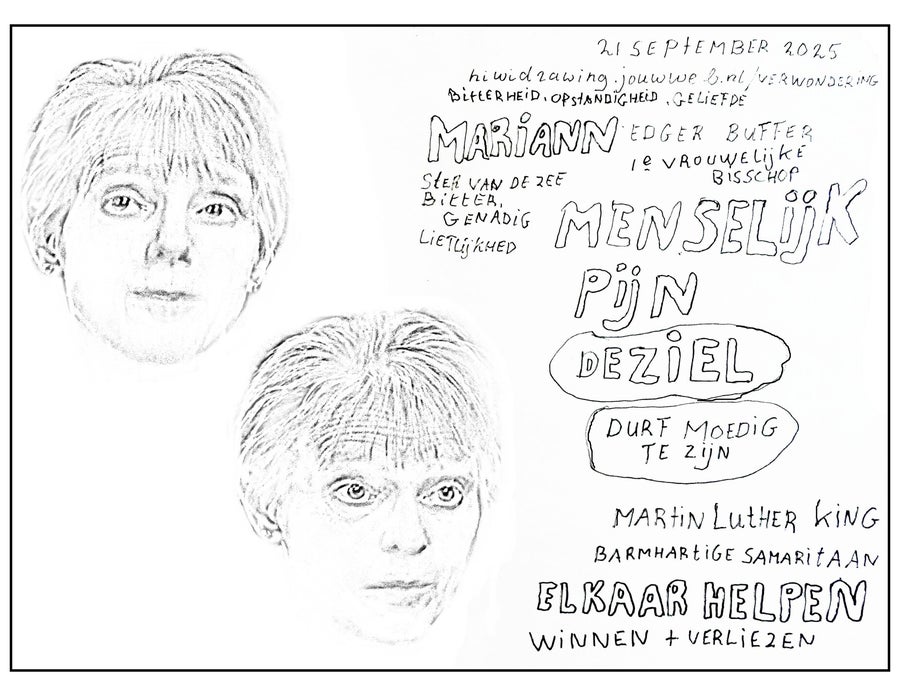 21 SEPTEMBER 2025
hiwidrawing.jouwweb.nl/VERWONDERING
BITTERHEID, OPSTANDIGHEID, GELIEFDE
MARIANN EDGER BUFFER
1e VROUWELIJKE
BISSCHOP
STER VAN DE ZEE
BITTER,
GENADIG
LIEFLIJKHEID
MENSELIJK
PIJN
DE ZIEL
DURF MOEDIG
TE ZIJN
MARTIN LUTHER KING
BARMHARTIGE SAMARITAAN
ELKAAR HELPEN
WINNEN + VERLIEZEN